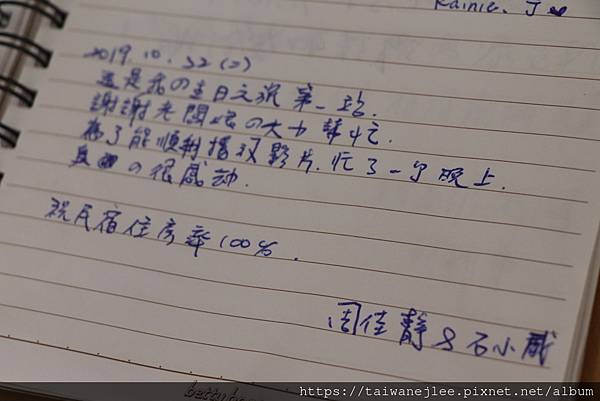 Rainie. J
2019.10.22(二)
這是我の生日之旅第一站.
謝謝老闆娘の大力幫忙.
為了能順利播放影片.忙了一个晚上.
真の很感动.
祝民宿住房率100%.
周佳靜&石小威
https://taiwanejlee.pixnet.net/album